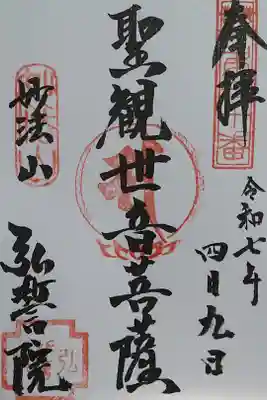 奉拝
令和七年
四月九日
聖観世音菩薩
妙法山
弘誓院